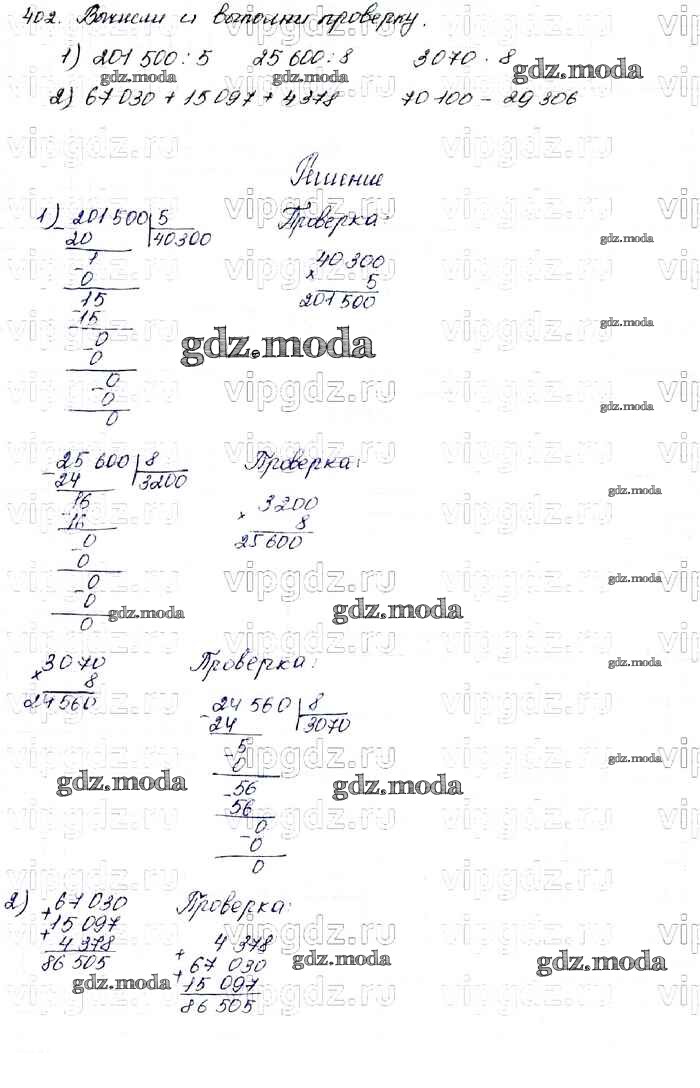 402. Вычисли и выполни проверку.
1) 201 500 : 5 25 600 : 8 3070 · 8
2) 67 030 + 15 097 + 4 378 70 100 - 29 306
Решение
1) - 201 500 | 5 Проверка:
20 40300 40 300
- 1 × 5
0 201 500
15
- 15
0
- 0
0
- 0
0
- 25 600 | 8 Проверка:
24 3200 3200
16 × 8
- 16 25 600
0
- 0
0
- 0
0
3070 Проверка:
× 8
24 560
- 24 560 | 8
24 3070
- 5
0
- 56
56
0
- 0
0
2) 67 030 Проверка:
+ 15 097
+ 4 378 4 378
86 505 + 67 030
+ 15 097
86 505
gdz.moda
vipgdz.ru